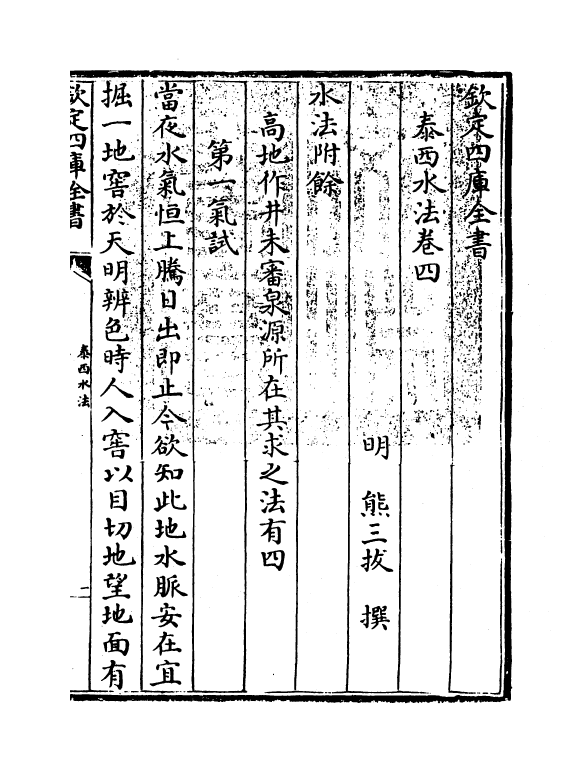 欽定四庫全書
泰西水法卷四
明　熊三拔　撰
水法附餘
高地作井未審泉源所在其求之法有四
第一氣試
當夜水氣恒上騰日出即止今欲知此地水脈安在宜
掘一地窖於天明辨色時人入窖以目切地望地面有
欽定四庫全書
泰西水法
二